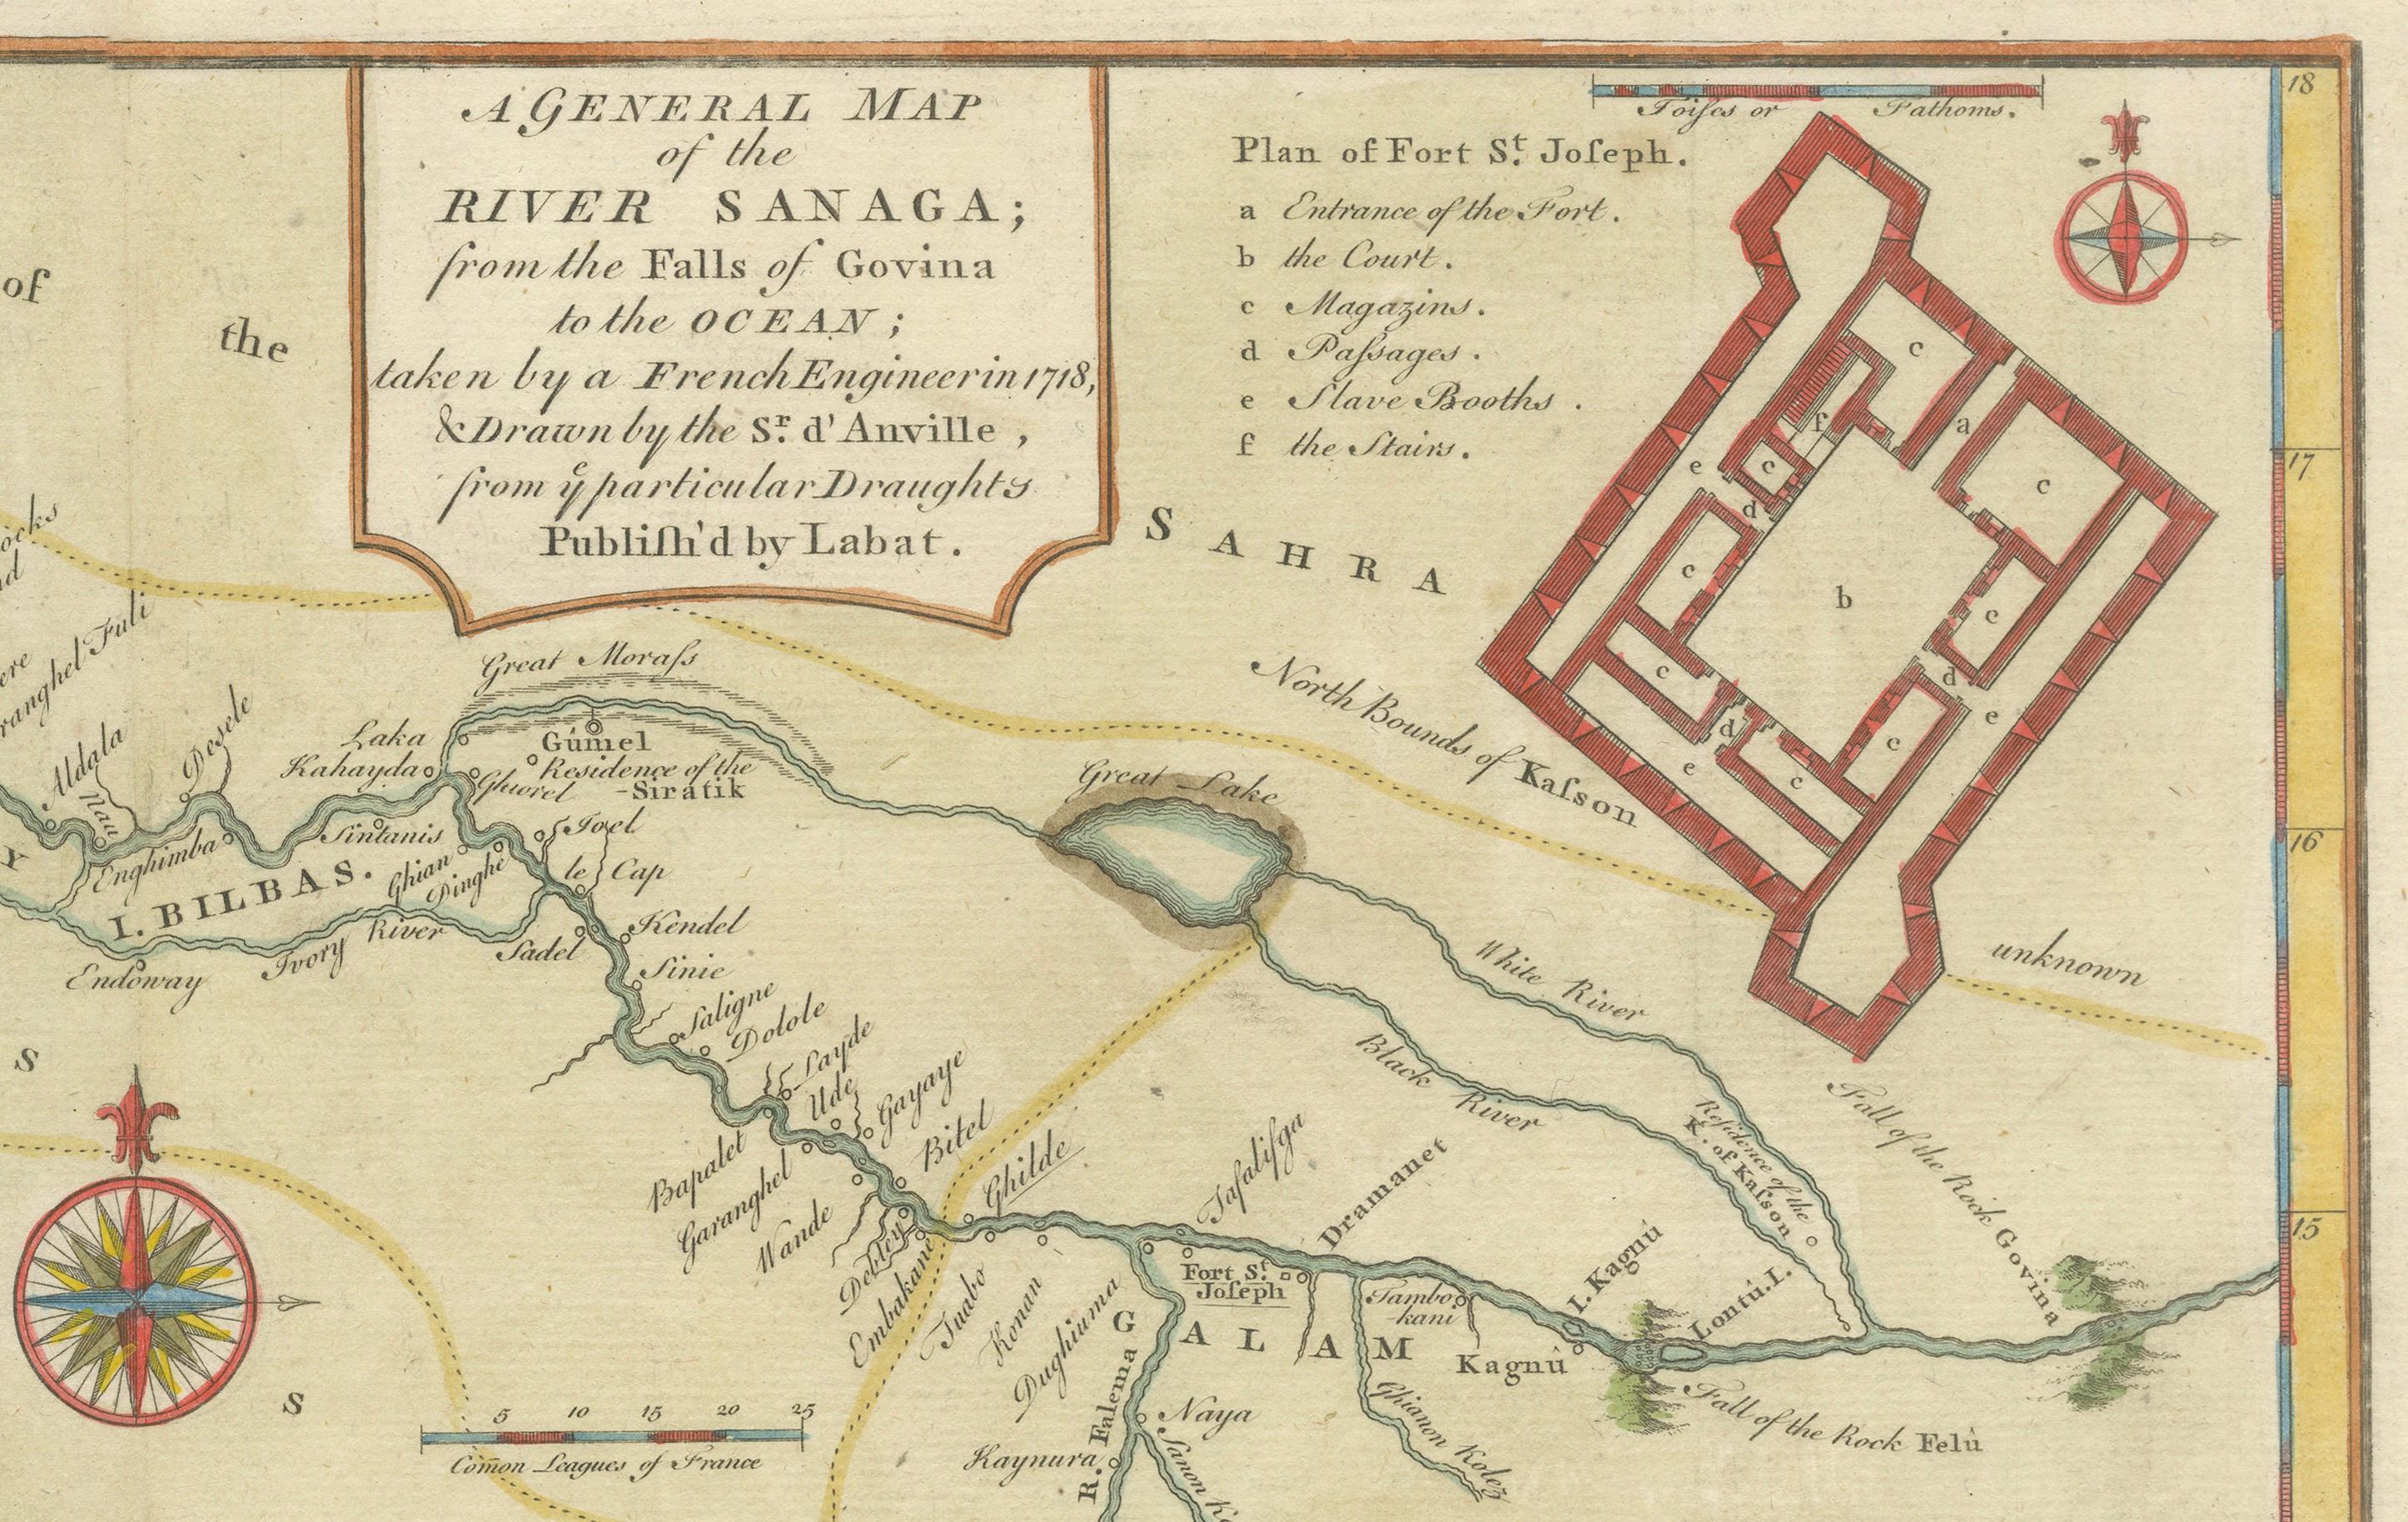 A GENERAL MAP
of the
RIVER SANAGA;
from the Falls of Govina
to the OCEAN;
taken by a French Engineer in 1718,
& Drawn by the Sr. d'Anville,
from ye particular Draughts
Publiſh'd by Labat.
Toiſes or Fathoms.
Plan of Fort St. Joſeph.
a Entrance of the Fort.
b the Court.
c Magazins.
d Paſsages.
e Slave Booths.
f the Stairs.
c
a
f
c
e
c
d
c
b
c
c
d
d
e
c
e
c
18
17
16
15
of
the
SAHRA
North Bounds of Kaſson
unknown
Great Moraſs
Laka
Kahayda
Gúmel
Residence of the
Siratik
Ghiorel
Aldala
Nau
Desele
Enghimba
Sintanis
Ghian
Dinghe
Joel
le Cap
I. BILBAS.
Ivory River
Endoway
Sadel
Kendel
Sinie
Saligne
Dolole
Layde
Ude
Gayaye
Bitel
Ghilde
Bapalet
Garanghel
Wande
Debley
Embakani
Tuabo
Konan
Dughiuma
Great Lake
White River
Black River
Residence of the
K. of Kaſson
Fall of the Rock Govina
Tafaliſga
Dramanet
Fort St.
Joſeph
GALAM
Tambo-
kani
I. Kagnú
Kagnú
Lontú. I.
Fall of the Rock Felú
R. Falema
Naya
Kaynura
Sanon
Ghianon Kolez
Y
S
S
5 10 15 20 25
Com̃on Leagues of France